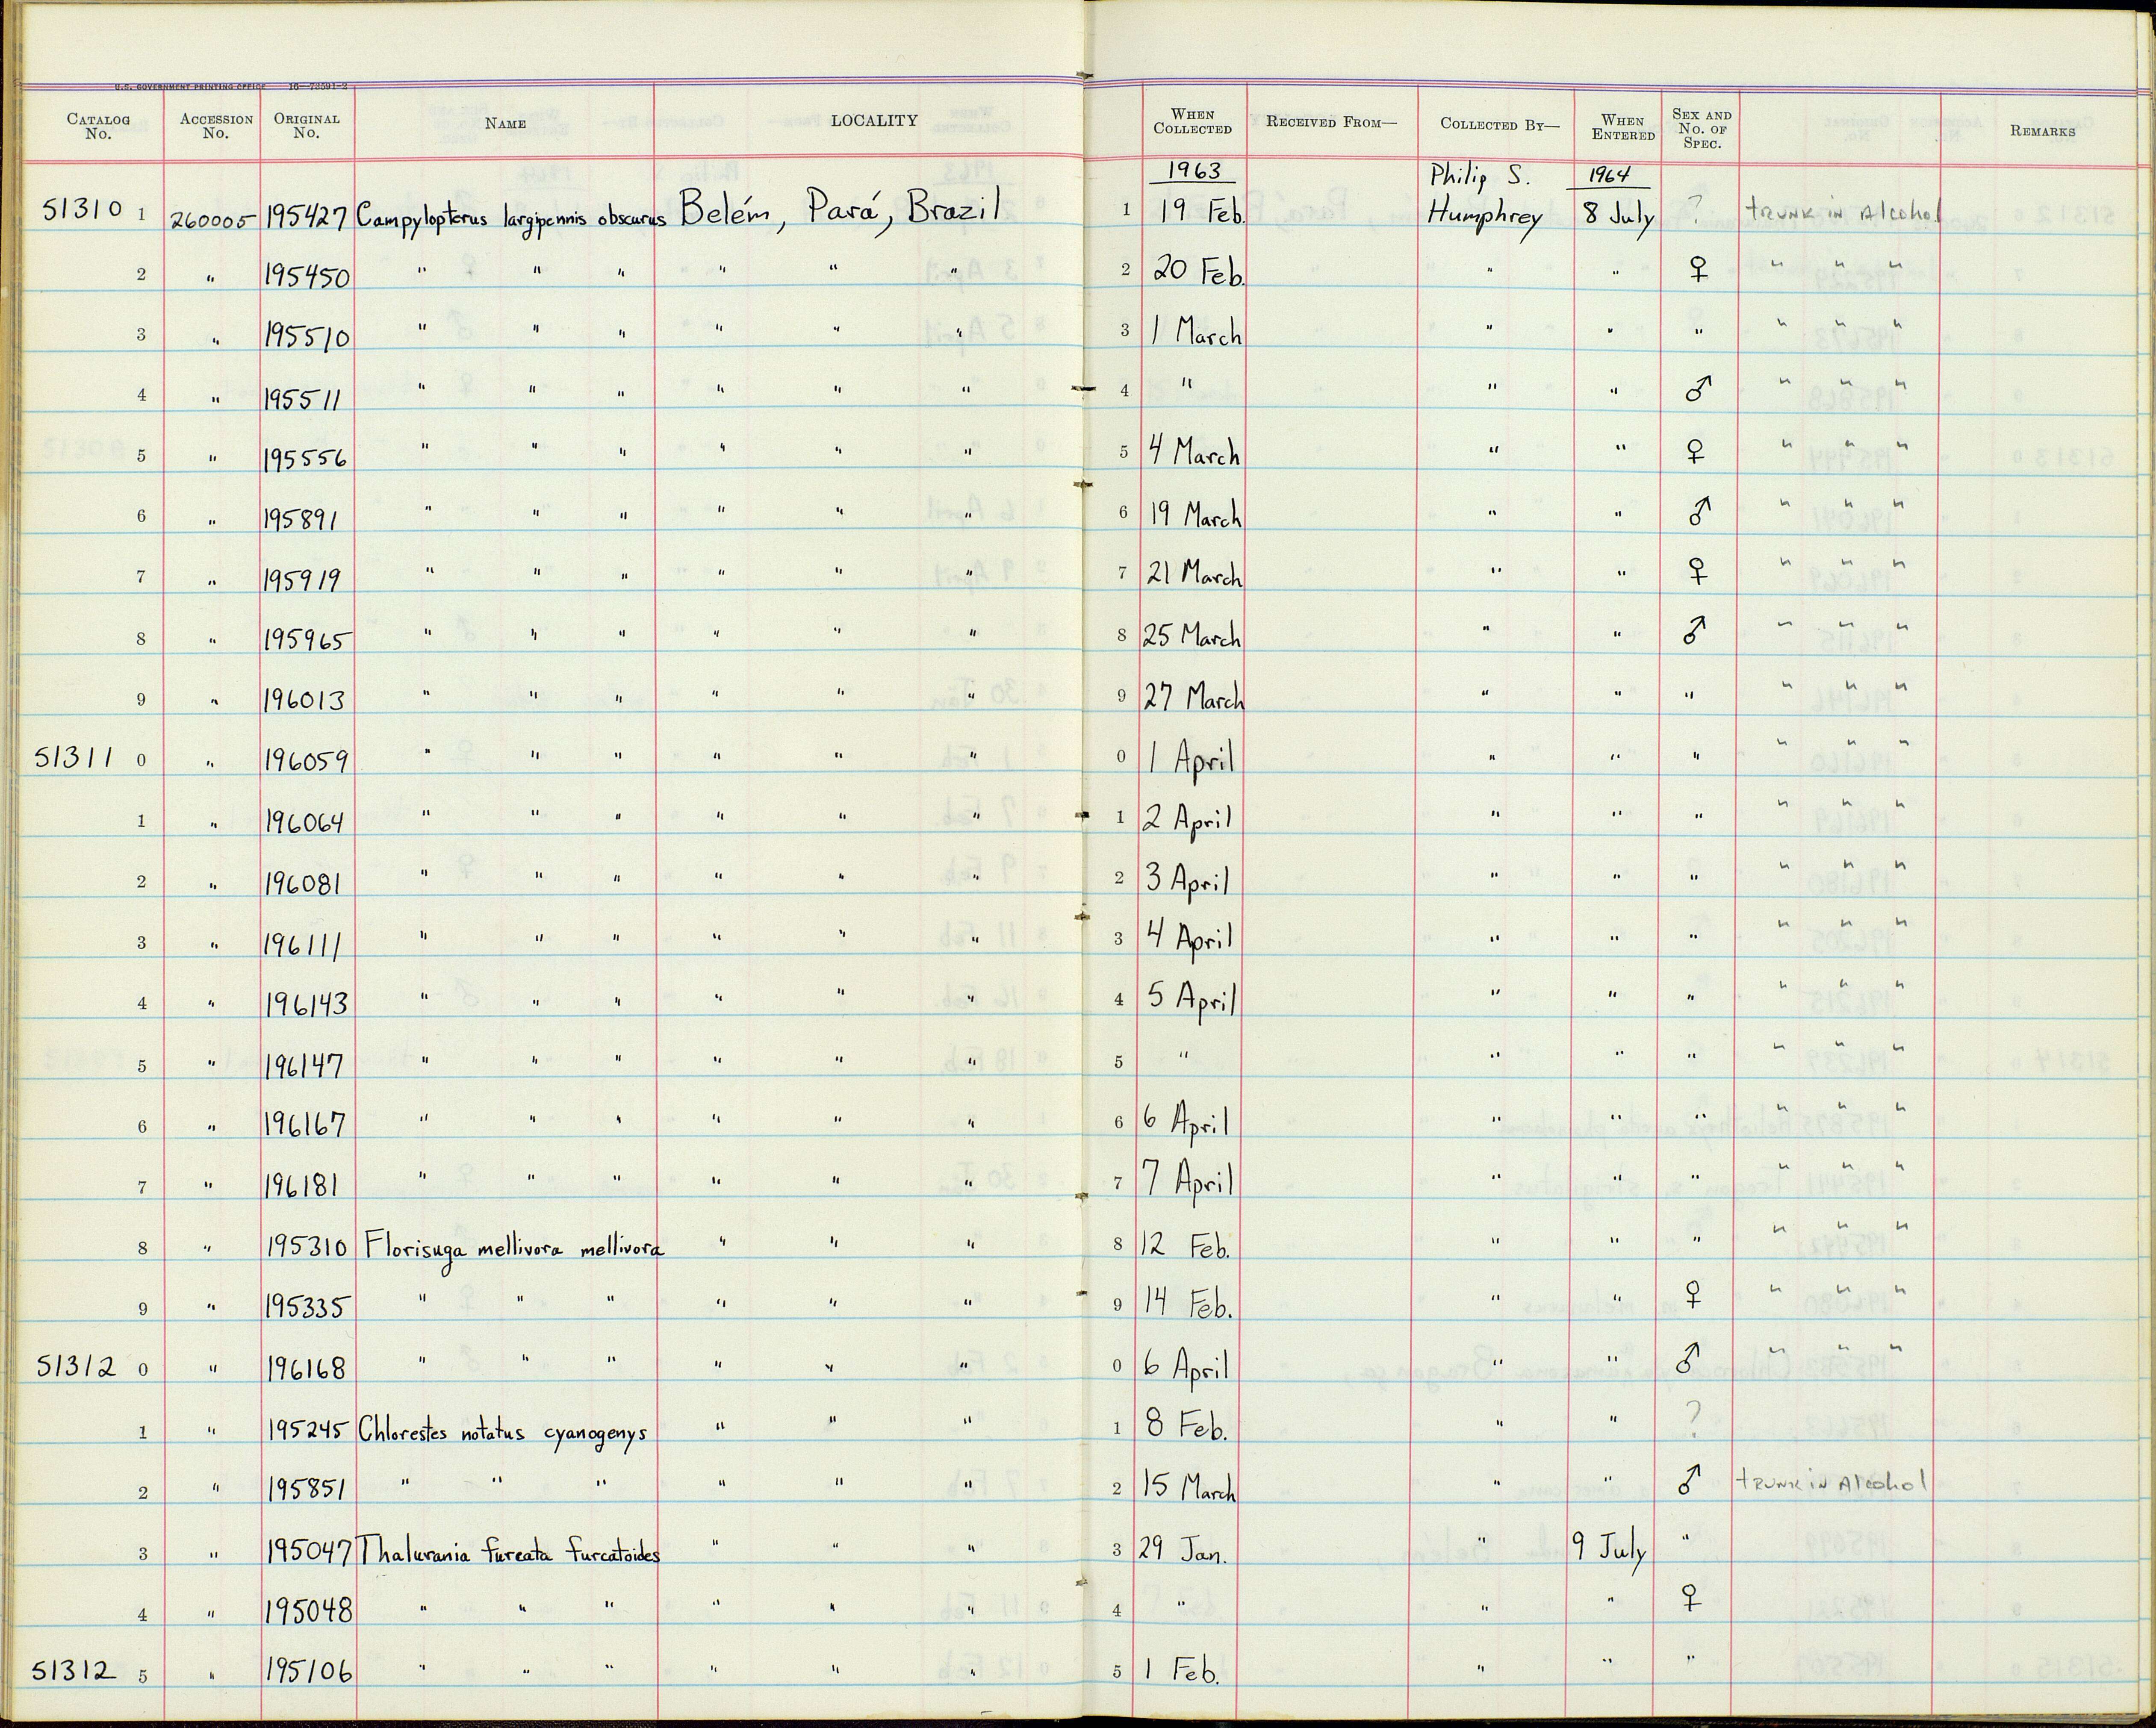 U.S. GOVERNMENT PRINTING OFFICE 16—73591-2
CATALOG No. ACCESSION No. ORIGINAL No. NAME LOCALITY WHEN COLLECTED RECEIVED FROM— COLLECTED BY— WHEN ENTERED SEX AND No. OF SPEC. REMARKS
1963 Philip S. 1964
51310 1 260005 195427 Campylopterus largipennis obscurus Belém, Pará, Brazil 1 19 Feb. Humphrey 8 July ? trunk in Alcohol
2 " 195450 " " " " " " 2 20 Feb. " " ♀ " " "
3 " 195510 " " " " " " 3 1 March " " " " " "
4 " 195511 " " " " " " 4 " " " ♂ " " "
5 " 195556 " " " " " " 5 4 March " " ♀ " " "
6 " 195891 " " " " " " 6 19 March " " ♂ " " "
7 " 195919 " " " " " " 7 21 March " " ♀ " " "
8 " 195965 " " " " " " 8 25 March " " ♂ " " "
9 " 196013 " " " " " " 9 27 March " " " " " "
51311 0 " 196059 " " " " " " 0 1 April " " " " " "
1 " 196064 " " " " " " 1 2 April " " " " " "
2 " 196081 " " " " " " 2 3 April " " " " " "
3 " 196111 " " " " " " 3 4 April " " " " " "
4 " 196143 " " " " " " 4 5 April " " " " " "
5 " 196147 " " " " " " 5 " " " " " " "
6 " 196167 " " " " " " 6 6 April " " " " " "
7 " 196181 " " " " " " 7 7 April " " " " " "
8 " 195310 Florisuga mellivora mellivora " " " 8 12 Feb. " " " " " "
9 " 195335 " " " " " " 9 14 Feb. " " ♀ " " "
51312 0 " 196168 " " " " " " 0 6 April " " ♂ " " "
1 " 195245 Chlorestes notatus cyanogenys " " " 1 8 Feb. " " ?
2 " 195851 " " " " " " 2 15 March " " ♂ trunk in Alcohol
3 " 195047 Thalurania furcata furcatoides " " " 3 29 Jan. " 9 July "
4 " 195048 " " " " " " 4 " " " ♀
51312 5 " 195106 " " " " " " 5 1 Feb. " " "